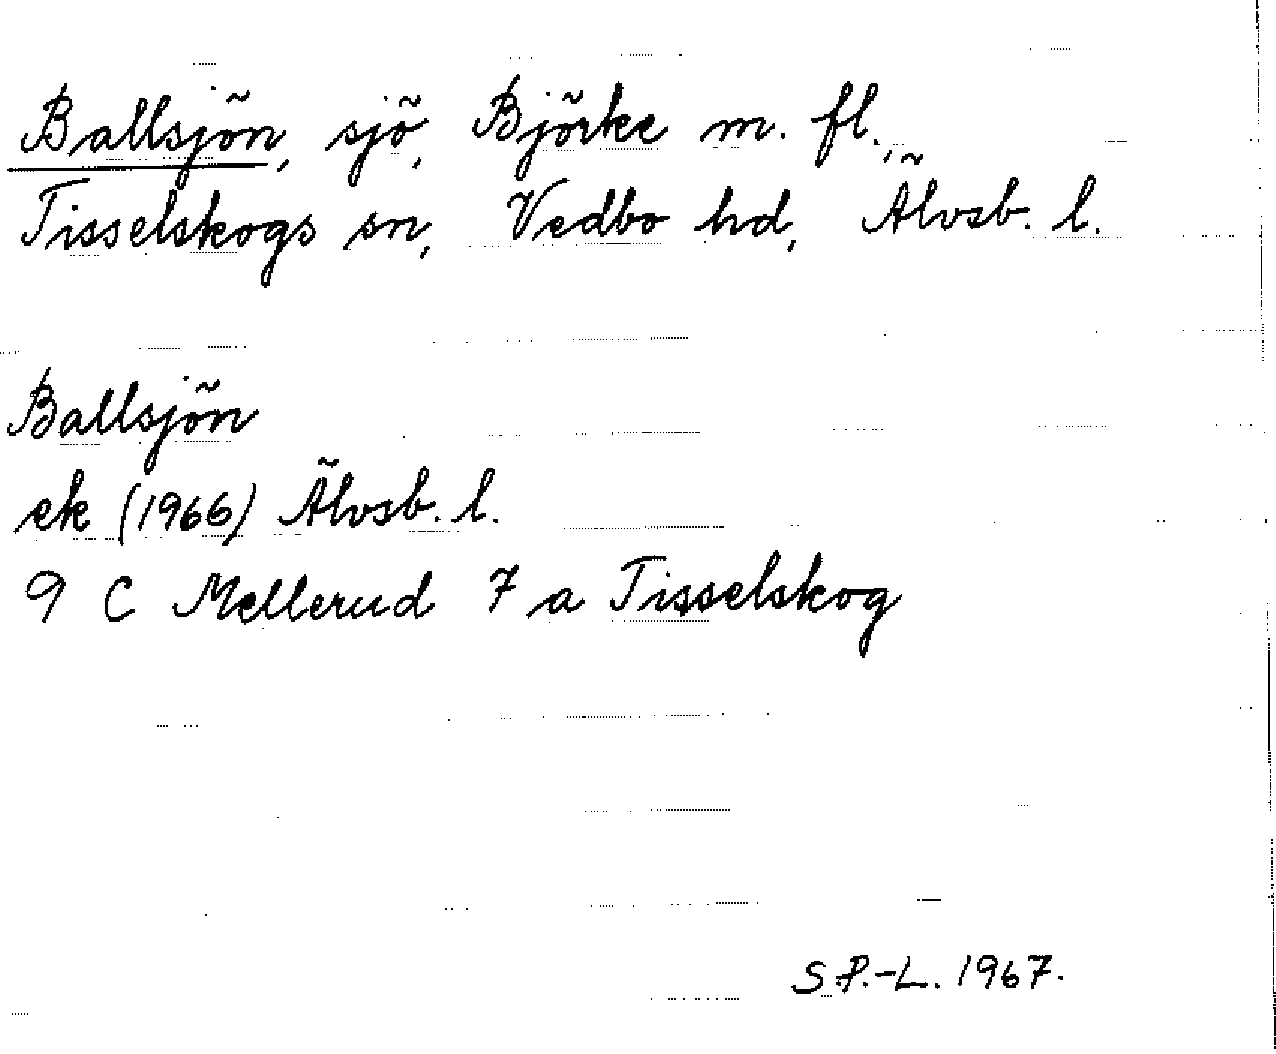 Ballsjön, sjö, Björke m. fl.,
Tisselskogs sn, Vedbo hd, Älvsb. l.
Ballsjön
ek (1966) Älvsb. l.
9 C Mellerud 7 a Tisselskog
S.P.-L. 1967.